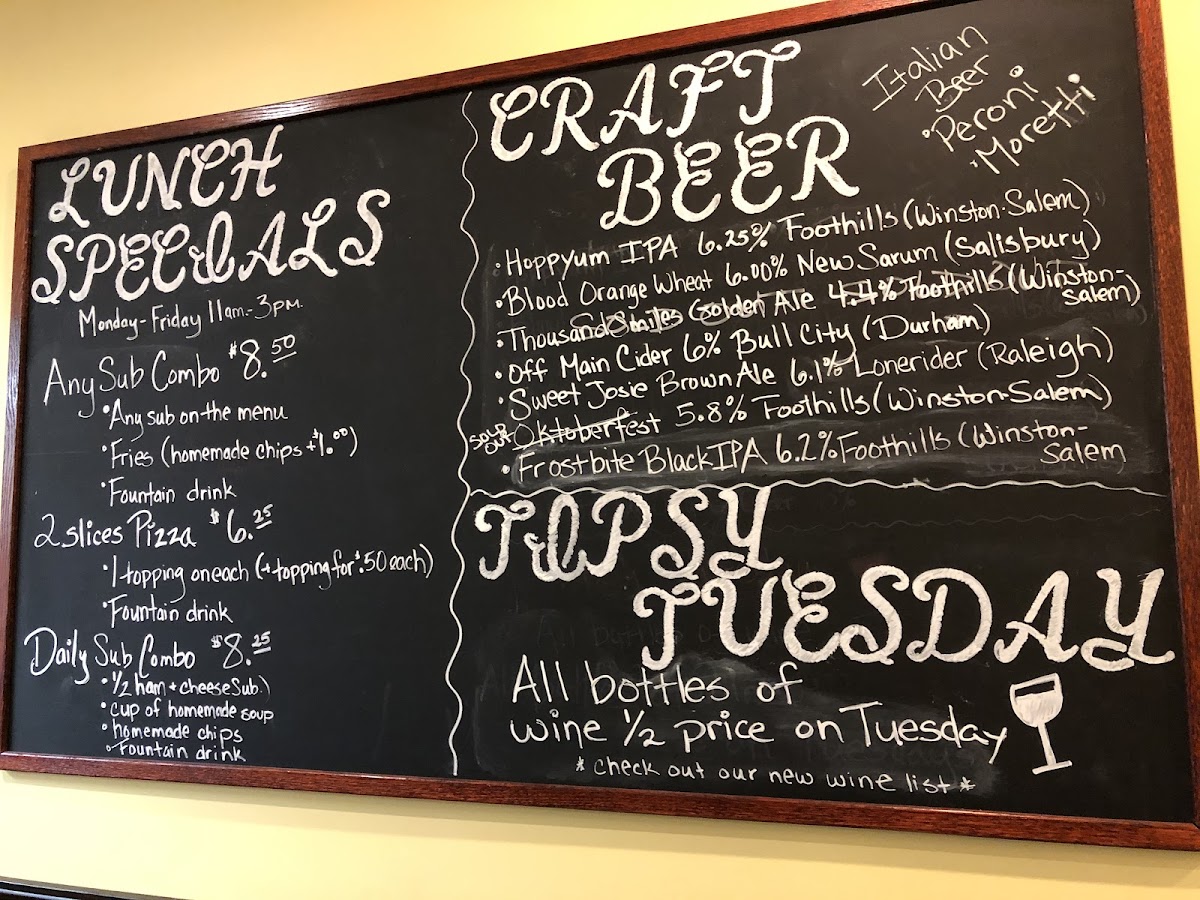 LUNCH
SPECIALS
Monday-Friday 11am-3pm.
Any Sub Combo $8.50
• Any sub on the menu
• Fries (homemade chips +$1.00)
• Fountain drink
2 slices Pizza $6.25
• 1 topping on each (+ topping for $.50 each)
• Fountain drink
Daily Sub Combo $8.25
• 1/2 ham + cheese Sub.)
• cup of homemade soup
• homemade chips
• Fountain drink
CRAFT
BEER
Italian
Beer
• Peroni
• Moretti
• Hoppyum IPA 6.25% Foothills (Winston-Salem)
• Blood Orange Wheat 6.00% New Sarum (Salisbury)
• Thousand Smiles Golden Ale 4.4% Foothills (Winston-
Salem)
• Off Main Cider 6% Bull City (Durham)
• Sweet Josie Brown Ale 6.1% Lonerider (Raleigh)
SOLD
OUT Oktoberfest 5.8% Foothills (Winston-Salem)
• Frostbite Black IPA 6.2% Foothills (Winston-
Salem
TIPSY
TUESDAY
All bottles of
wine 1/2 price on Tuesday
* check out our new wine list *